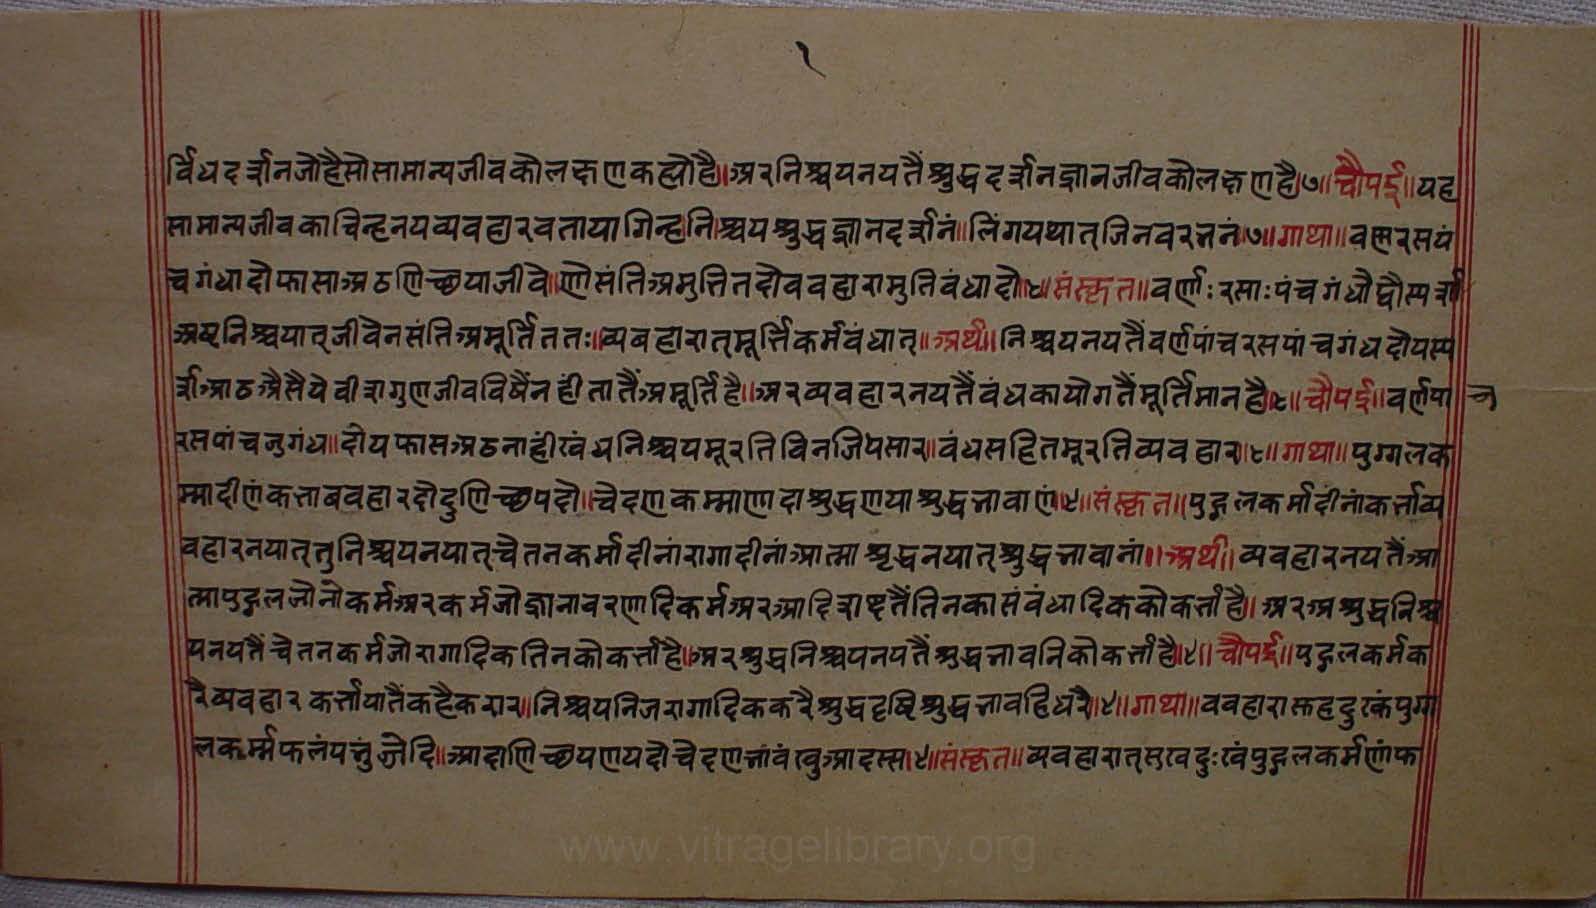 १
र्विधदर्शनजोहैसोसामान्यजीवकोलक्षणकह्योहै॥अरनिश्चयनयतैंशुद्धदर्शनज्ञानजीवकोलक्षणहै७॥चौपई॥यह
सामान्यजीवकाचिन्हनयव्यवहारवतायागिन्हनिश्चयशुद्धज्ञानदर्शनं॥लिंगयथातजिनवरभनं७॥गाथा॥वणरसयं
चगंधादोफासाअठणिच्छयाजीवे॥णोसंतिअमुत्तितदोववहारामुतिवंधादो८॥संस्कृत॥वर्णाःरसाःपंचगंधौद्वौस्पर्शा
अष्टनिश्चयात्जीवेनसंतिअमूर्तिततः॥व्यबहारात्मूर्त्तिकर्मवंधात्॥अर्थ॥निश्चयनयतैंवर्णपांचरसपांचगंधदोयस्प
र्शआठअैसैयेवीशगुणजीवविषैंनहींतातैंअमूर्तिहै॥अरव्यवहारनयतैंवंधकायोगतैंमूर्तिमानहै८॥चौपई॥वर्णपा च
रसपांचजुगंध॥दोयफासअठनाहींखंधनिश्चयमूरतिविनजियसार॥वंधसहितमूरतिव्यवहार॥८॥गाथा॥पुग्गलक
म्मादीणंकत्ताबवहारदोदुणिच्छयदो॥चेदणकम्माणादाशुद्धणयाशुद्धभावाणं॥८॥संस्कृत॥पुद्गलकर्मादीनांकर्त्ताव्य
वहारनयात्तुनिश्चयनयात्चेतनकर्मादीनांरागादीनांआत्माशुद्धनयात्शुद्धभावानां॥अर्थ॥व्यवहारनयतैंआ
त्मापुद्गलजोनोकर्मअरकर्मजोज्ञानावरणादिकर्मअरआदिशब्दतैंतिनकासंवंधादिककोकर्त्ताहै॥अरअशुद्धनिश्च
यनयतैंचेतनकर्मजोरागादिकतिनकोकर्त्ताहै॥अरशुद्धनिश्चयनयतैंशुद्धभावनिकोकर्त्ताहै८॥चौपई॥पुद्गलकर्मक
रैव्यवहारकर्त्तायातैंकहैकरार॥निश्चयनिजरागादिककरैशुद्धदृष्टिशुद्धभावहिधरै८॥गाथा॥ववहारासुहदुःकंपुग्ग
लकर्म्मफलंपभुंजेदि॥आदाणिच्छयणयदोचेदणभावंखुआदस्स९॥संस्कृत॥व्यवहारात्सुखदुःखंपुद्गलकर्मणांफ
www.vitragelibrary.org